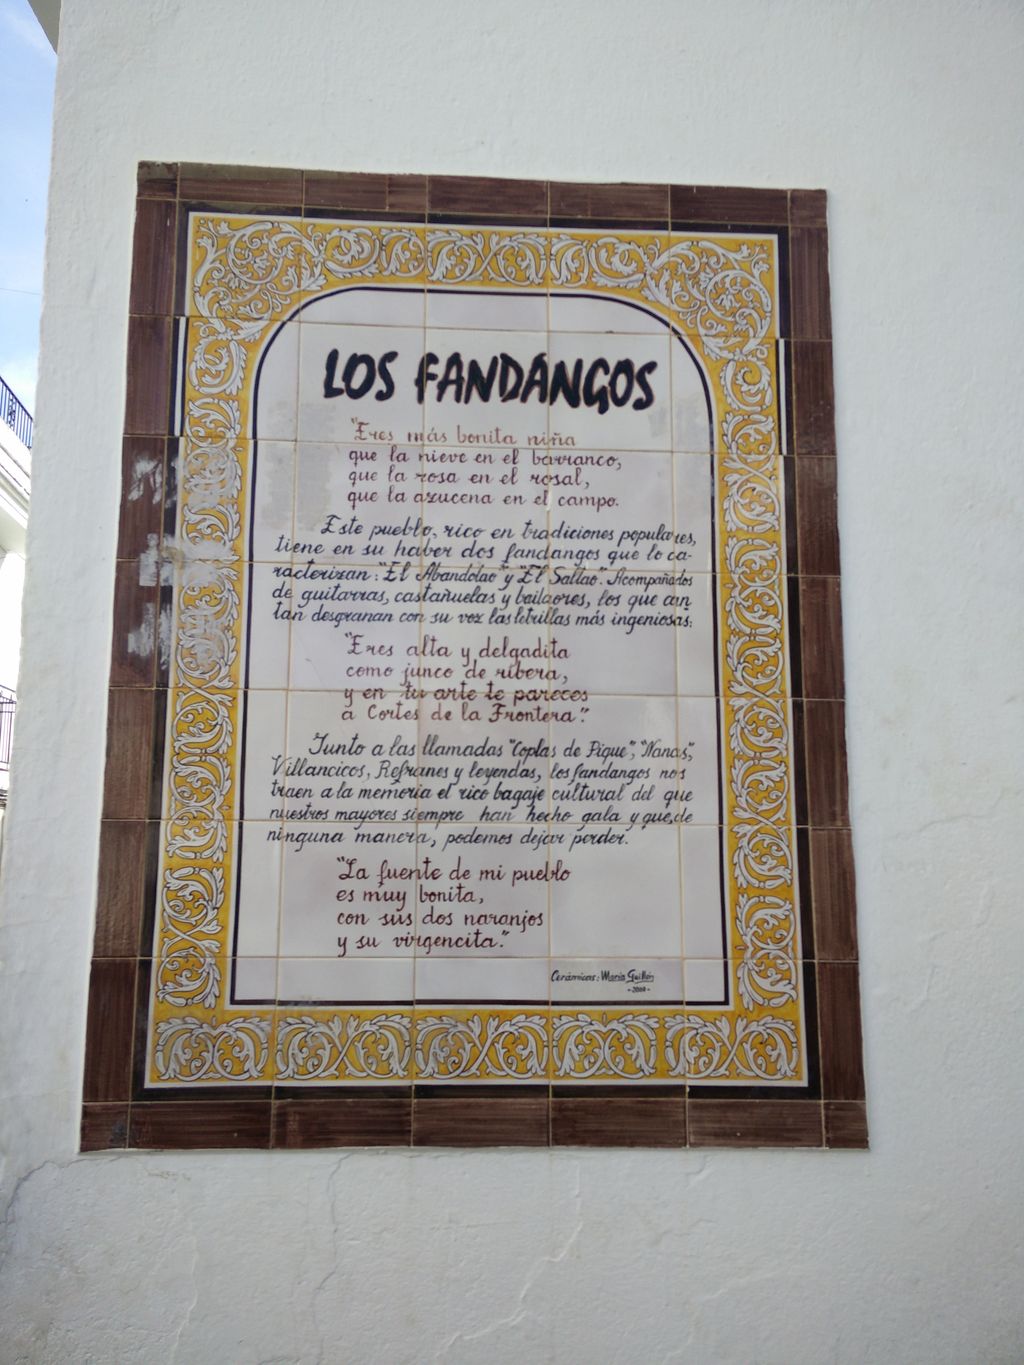 LOS FANDANGOS
"Eres más bonita niña
que la nieve en el barranco,
que la rosa en el rosal,
que la azucena en el campo.
Este pueblo, rico en tradiciones populares,
tiene en su haber dos fandangos que lo ca-
racterizan: "El Abandolao" y "El Saltao". Acompañados
de guitarras, castañuelas y bailaores, los que can
tan desgranan con su voz las letrillas más ingeniosas:
"Eres alta y delgadita
como junco de ribera,
y en tu arte te pareces
a Cortes de la Frontera".
Junto a las llamadas "Coplas de Pique", "Nanas",
Villancicos, Refranes y leyendas, los fandangos nos
traen a la memoria el rico bagaje cultural del que
nuestros mayores siempre han hecho gala y que, de
ninguna manera, podemos dejar perder.
"La fuente de mi pueblo
es muy bonita,
con sus dos naranjos
y su virgencita".
Cerámicas: María Guillén